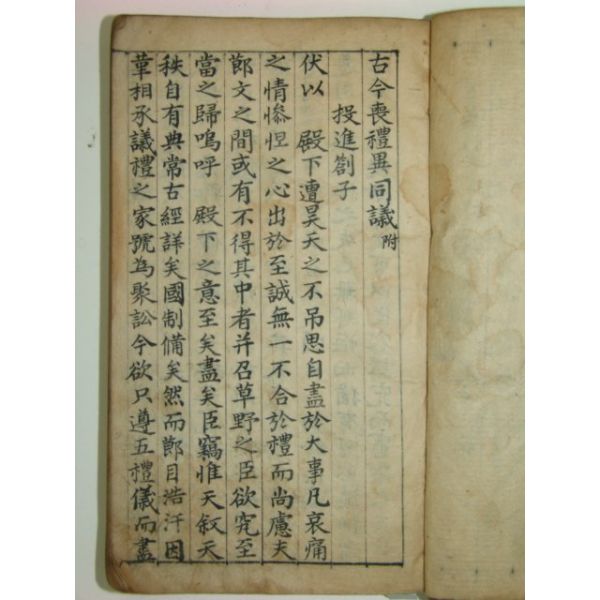 古今喪禮異同議附
投進劄子
伏以 殿下遭昊天之不吊思自盡於大事凡哀痛
之情慘怛之心出於至誠無一不合於禮而尚慮夫
節文之間或有不得其中者并召草野之臣欲究至
當之歸嗚呼 殿下之意至矣盡矣臣竊惟天叙天
秩自有典常古經詳矣國制備矣然而節目浩汗因
革相承議禮之家號為聚訟今欲只遵五禮儀而盡